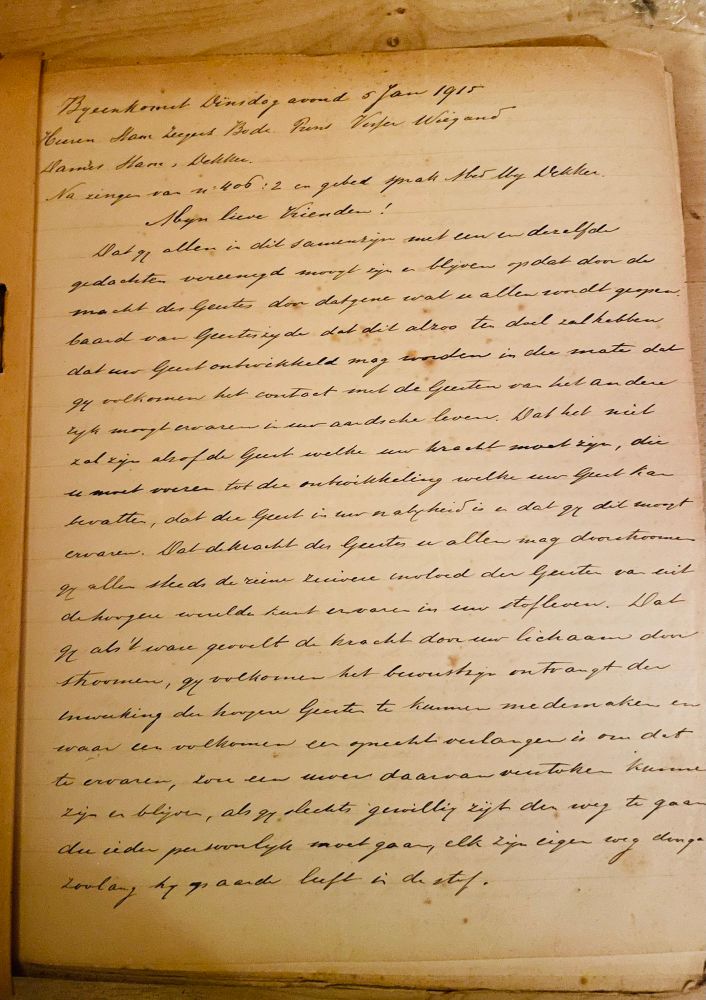 Byeenkomst Dinsdag avond 5 Jan 1915
Heeren Ham Zeegers Bode Prins Visser Wiegand
Dames Ham, Dekker.
Na zingen van n: 406:2 en gebed sprak Med My Dekker.
Myn lieve Vrienden!
Dat gy allen in dit samenzyn met een en dezelfde
gedachten vereenigd moogt zyn en blyven opdat door de
macht des Geestes door datgene wat u allen wordt geopen
baard van Geesteszyde dat dit alzoo ten doel zal hebben
dat uw Geest ontwikkeld mag worden in die mate dat
gy volkomen het contact met de Geesten van het andere
zyde moogt ervaren in uw aardsche leven. Dat het niet
zal zyn alsof de Geest welke uw kracht moet zyn, die
u moet voeren tot die ontwikkeling welke uw Geest kan
bevatten, dat die Geest in uw nabyheid is en dat gy dit moogt
ervaren. Dat de kracht des Geestes u allen mag doorstroomen
gy allen steeds de reine zuivere invloed der Geesten van uit
de hoogere wereld kunt ervaren in uw stofleven. Dat
gy als't ware gevoelt de kracht door uw lichaam door
stroomen, gy volkomen het bewustzyn ontvangt der
inwerking der hoogere Geesten te kunnen medemaken en
waar een volkomen een oprecht verlangen is om dat
te ervaren, zou een uwer daarvan verstoken kunne
zyn en blyven, als gy slechts gewillig zyt den weg te gaan
die ieder persoonlyk moet gaan, elk zyn eigen weg
zoolang hy op aarde leeft in de stof.